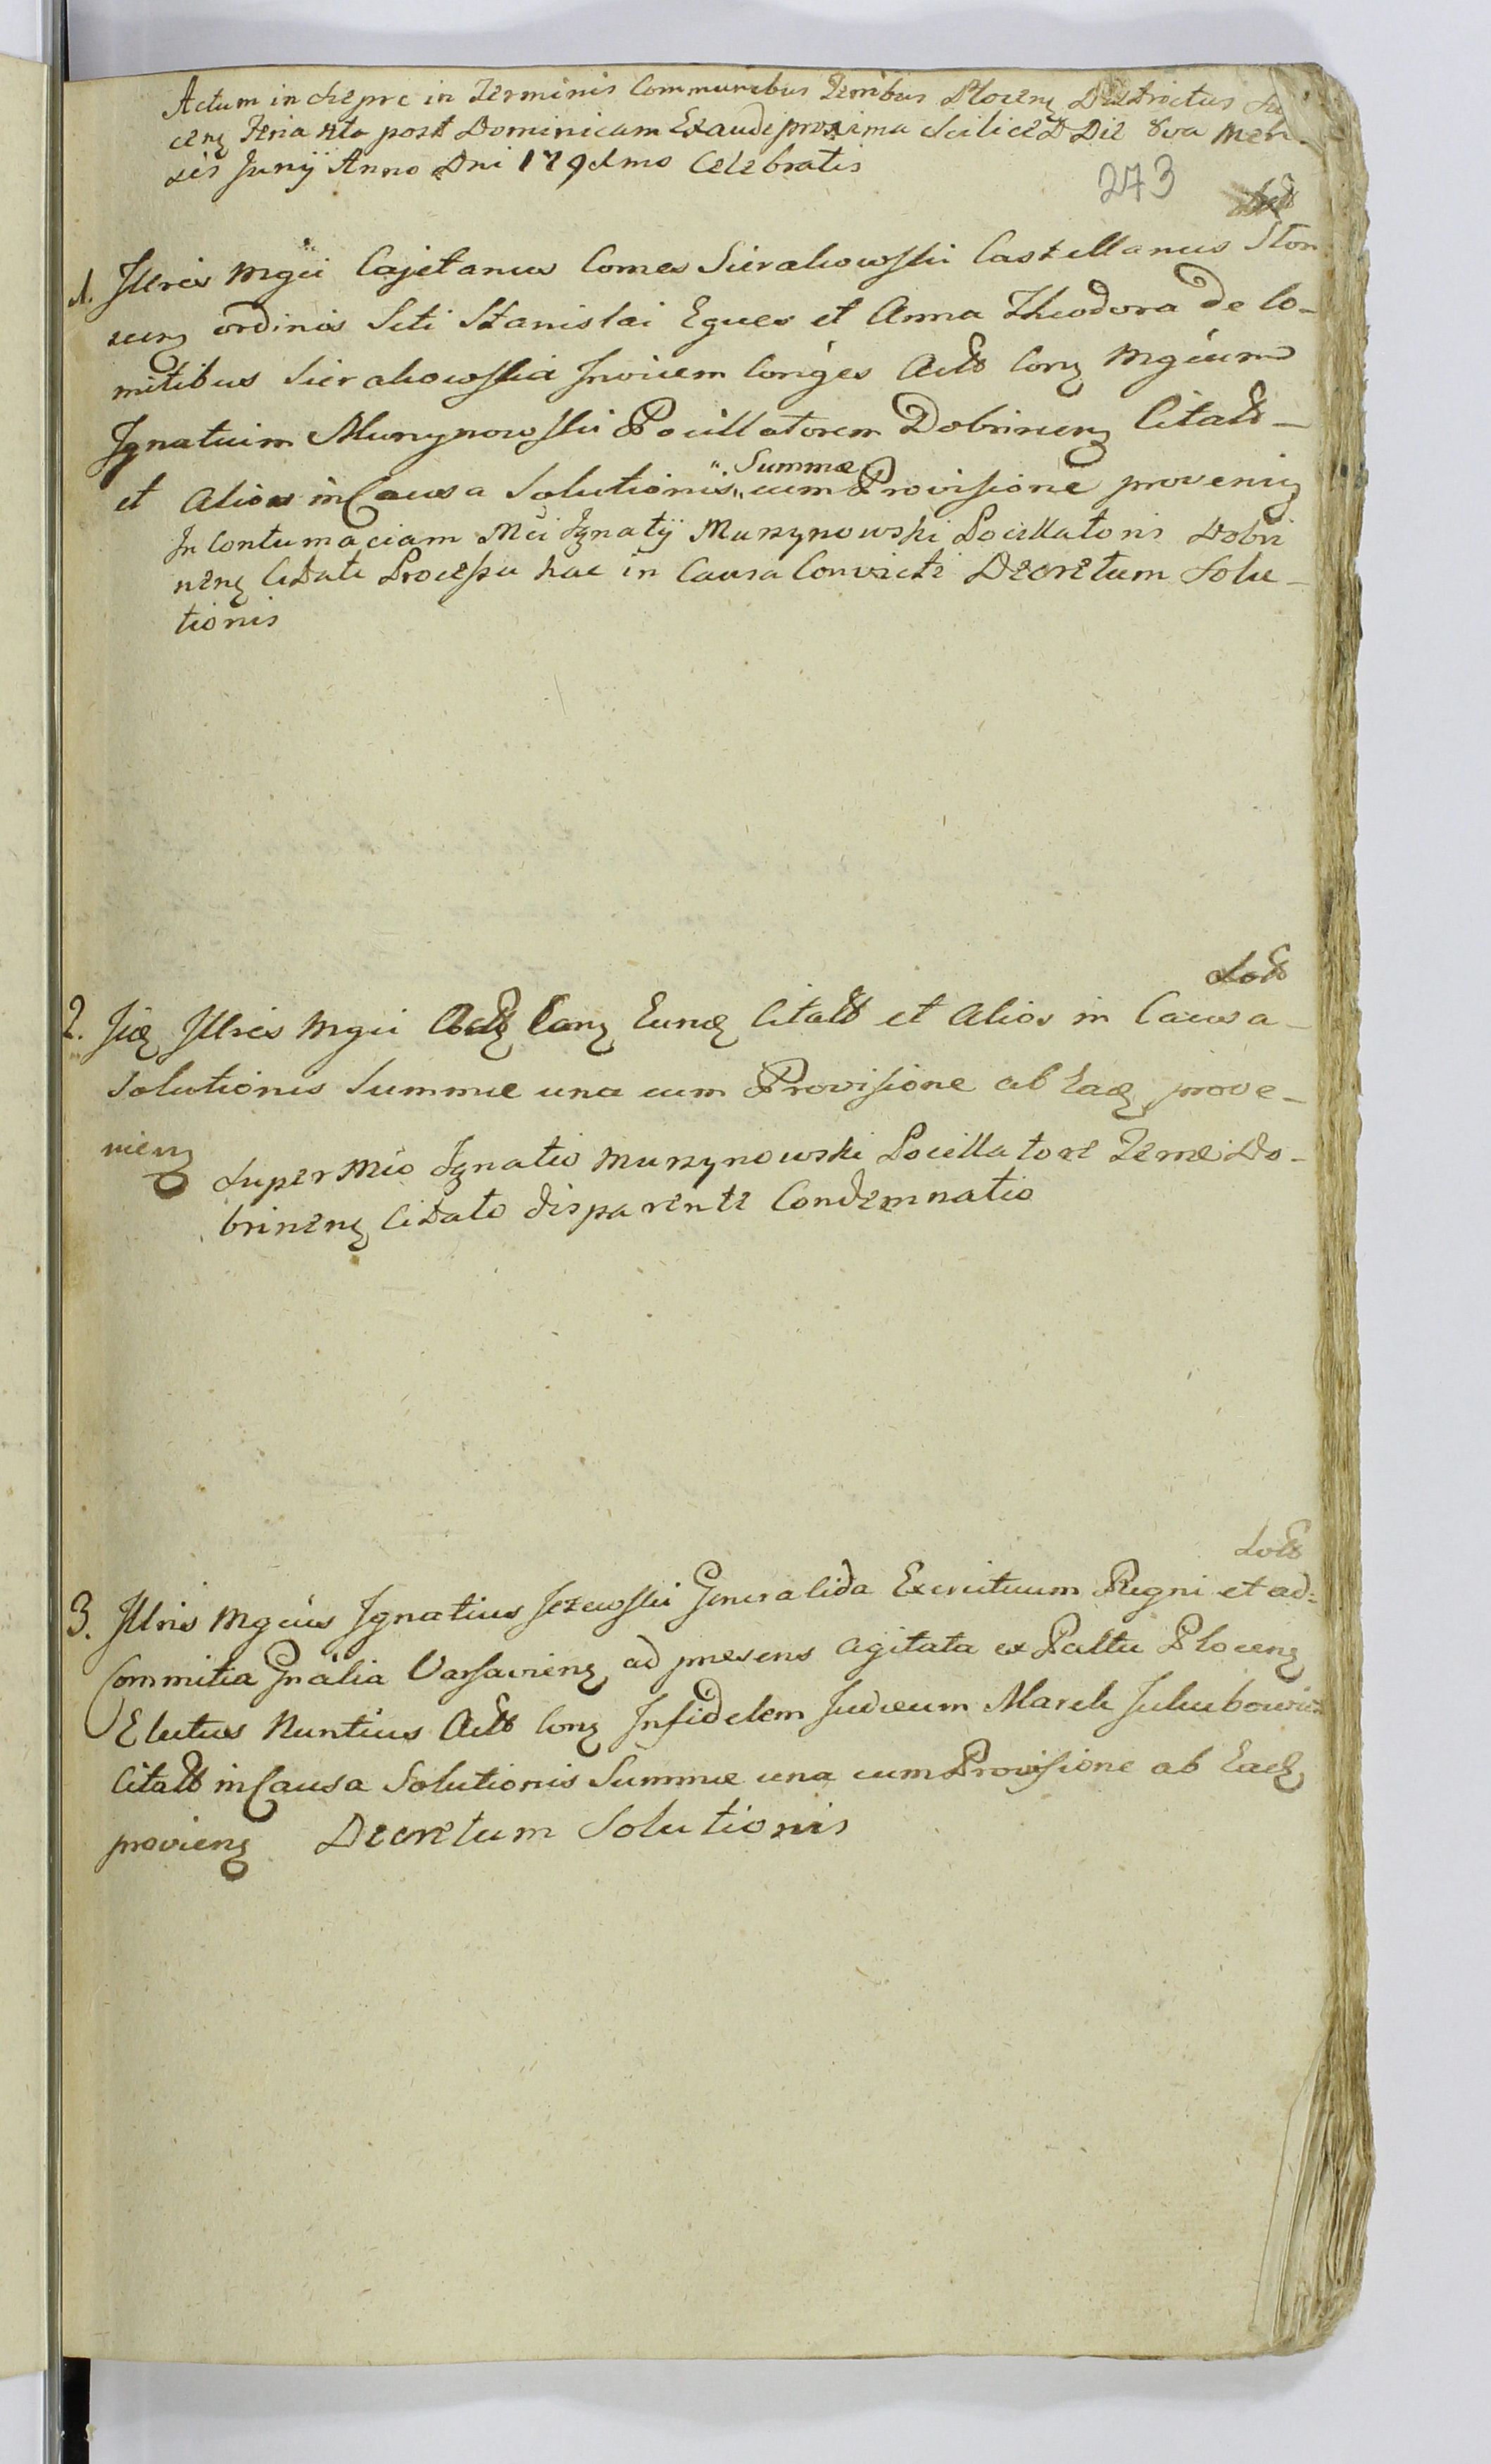 Actum in Siepre in Terminis Communibus Terribus Plocens Districtus
cens Feria 4ta post Dominicam Exaudi proxima Scilicet Die 8va Men-
sis Junij Anno Dni 1791mo Celebratis
273
1. Illres Mgci Cajetanus Comes Sierakowski Castellanus Slon
scens ordinis Scti Stanislai Eques et Anna Theodora de Co-
mitibus Sierakowska Invicem Conges Actt Conz Mgcum
Ignatium Murzynowski Pocillatorem Dobrinens Citatt
et Alios in Causa Solutionis "Summæ
" cum Provisione proveniz
In Contumaciam Mci Ignatij Murzynowski Pocillatoris Dobri
nens Citati Processu hac in Causa Convicti Decretum Solu-
tionis
2. Iidz Illres Mgci Actz Conz Eundz Citatt et Alios in Causa
Solutionis Summæ una cum Provisione ab Eadz prove-
nienz
Super Mco Ignatio Murzynowski Pocillatore Terræ Do-
brinens Citato disparente Condemnatio
3. Illris Mgcus Ignatius Jezewski Generalida Exercituum Regni et ad
Commitia Gnalia Varsaviens ad præsens agitata ex Paltu Plocens
Electus Nuntius Actt Conz Infidelem Judæum Marek Jakubowicz
Citatt in Causa Solutionis Summæ una cum Provisione ab Eadz
provienz Decretum Solutionis